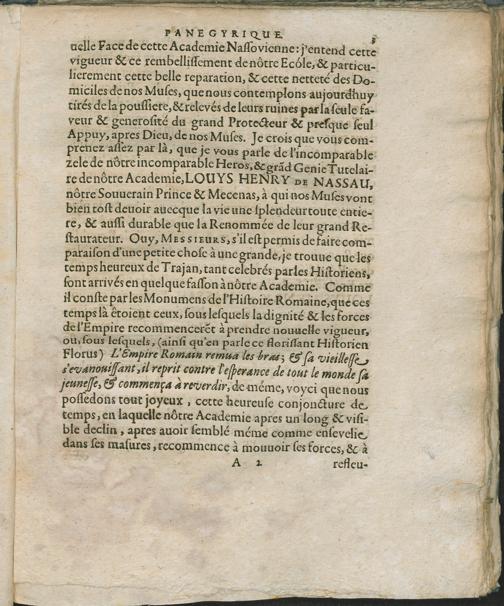 PANEGYRIQUE. 3
uelle Face de cette Academie Nassovienne: j'entend cette
vigueur & ce rembellissement de nôtre Ecóle, & particu-
lierement cette belle reparation, & cette netteté des Do-
miciles de nos Muses, que nous contemplons aujourdhuy
tirés de la poussiere, & relevés de leurs ruines par la seule fa-
veur & generosité du grand Protecteur & presque seul
Appuy, apres Dieu, de nos Muses. Je crois que vous com-
prenez assez par là, que je vous parle de l'incomparable
zele de nôtre incomparable Heros, & grãd Genie Tutelai-
re de nôtre Academie, LOUYS HENRY DE NASSAU,
nôtre Souuerain Prince & Mecenas, à qui nos Muses vont
bien tost deuoir auecque la vie une splendeur toute entie-
re, & aussi durable que la Renommée de leur grand Re-
staurateur. Ouy, MESSIEURS, s'il est permis de faire com-
paraison d'une petite chose à une grande, je trouue que les
temps heureux de Trajan, tant celebrés par les Historiens,
sont arrivés en quelque fasson à nôtre Academie. Comme
il conste par les Monumens de l'Histoire Romaine, que ces
temps là étoient ceux, sous lesquels la dignité & les forces
de l'Empire recommencerẽt à prendre nouuelle vigueur,
ou, sous lesquels, (ainsi qu'en parle ce florissant Historien
Florus) L'Empire Romain remua les bras; & sa vieillesse
s'evanouissant, il reprit contre l'esperance de tout le monde sa
jeunesse, & commença à reverdir, de méme, voyci que nous
possedons tout joyeux, cette heureuse conjoncture de
temps, en laquelle nôtre Academie apres un long & visi-
ble declin, apres auoir semblé méme comme ensevelie
dans ses masures, recommence à mouuoir ses forces, & à
A 2 refleu-